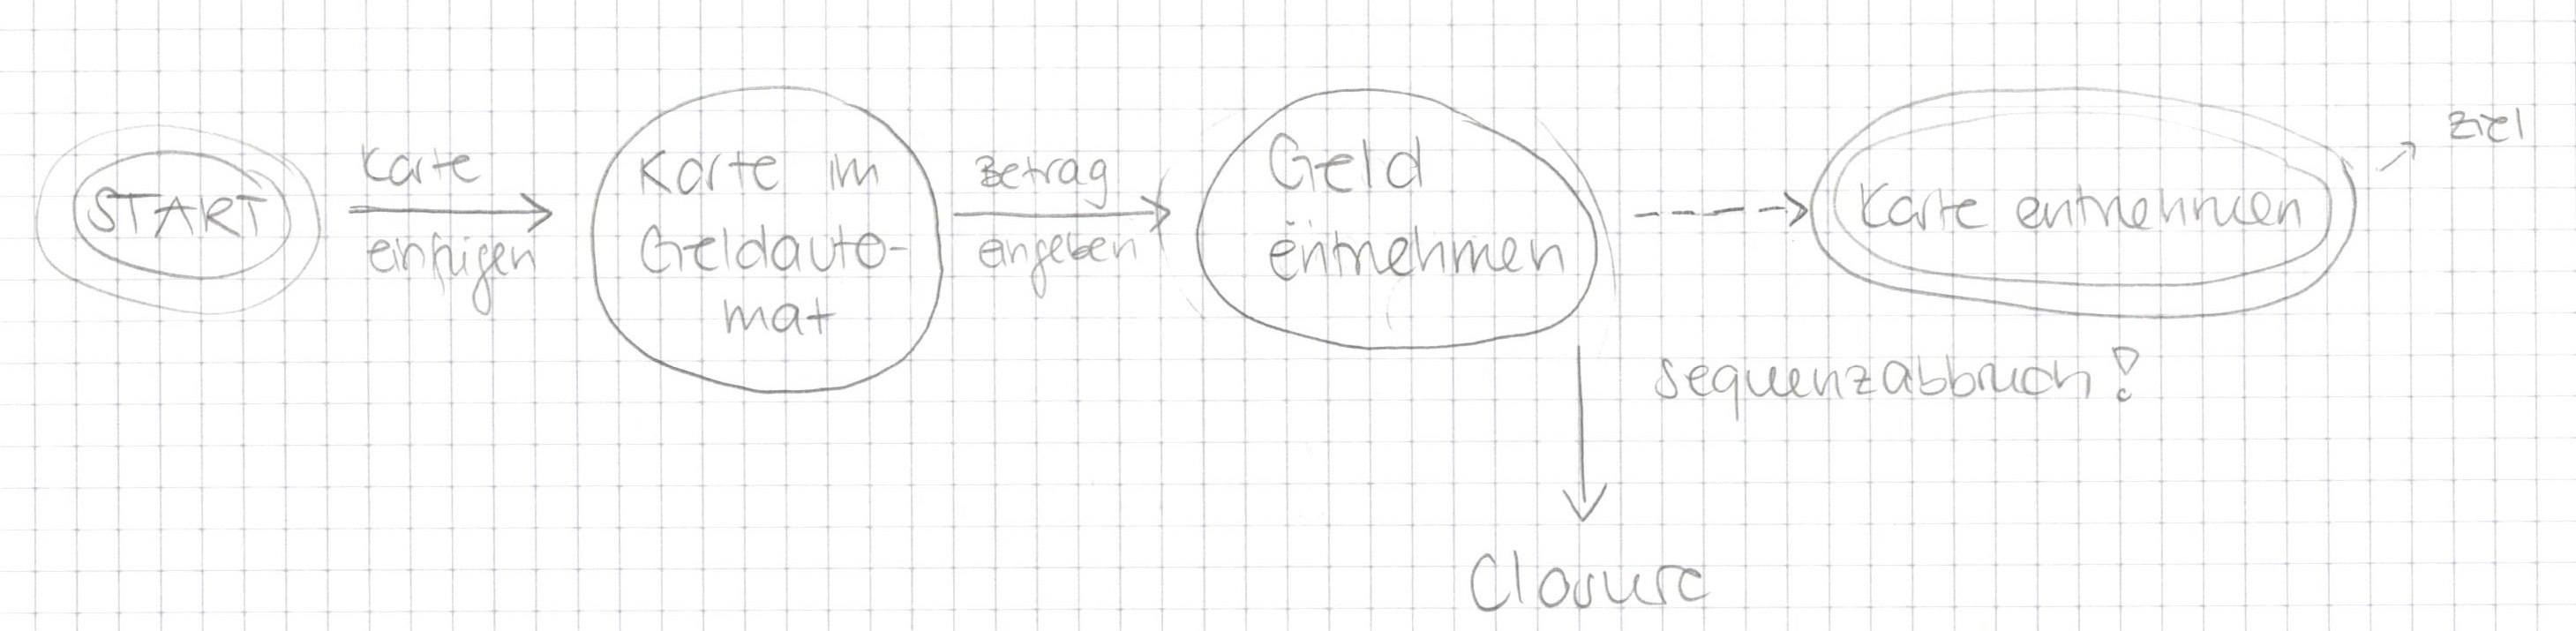 START
Karte
einfügen
Karte im
Geldauto-
mat
Betrag
angeben
Geld
entnehmen
Karte entnehmen
Ziel
Sequenzabbruch!
Closure